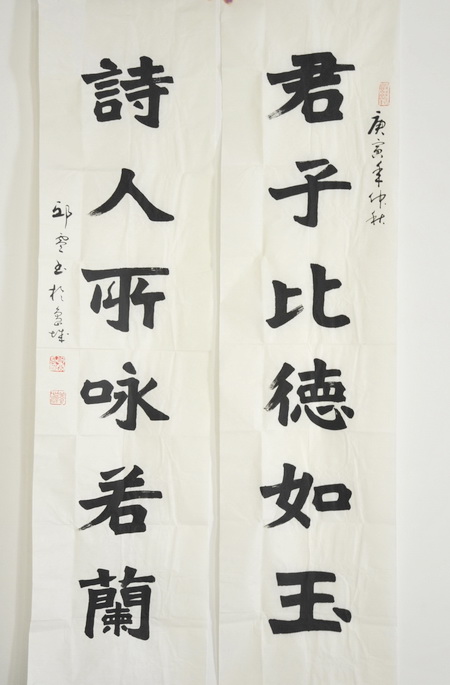 庚寅年仲秋
君子比德如玉
詩人所咏若蘭
邱零书於泉城